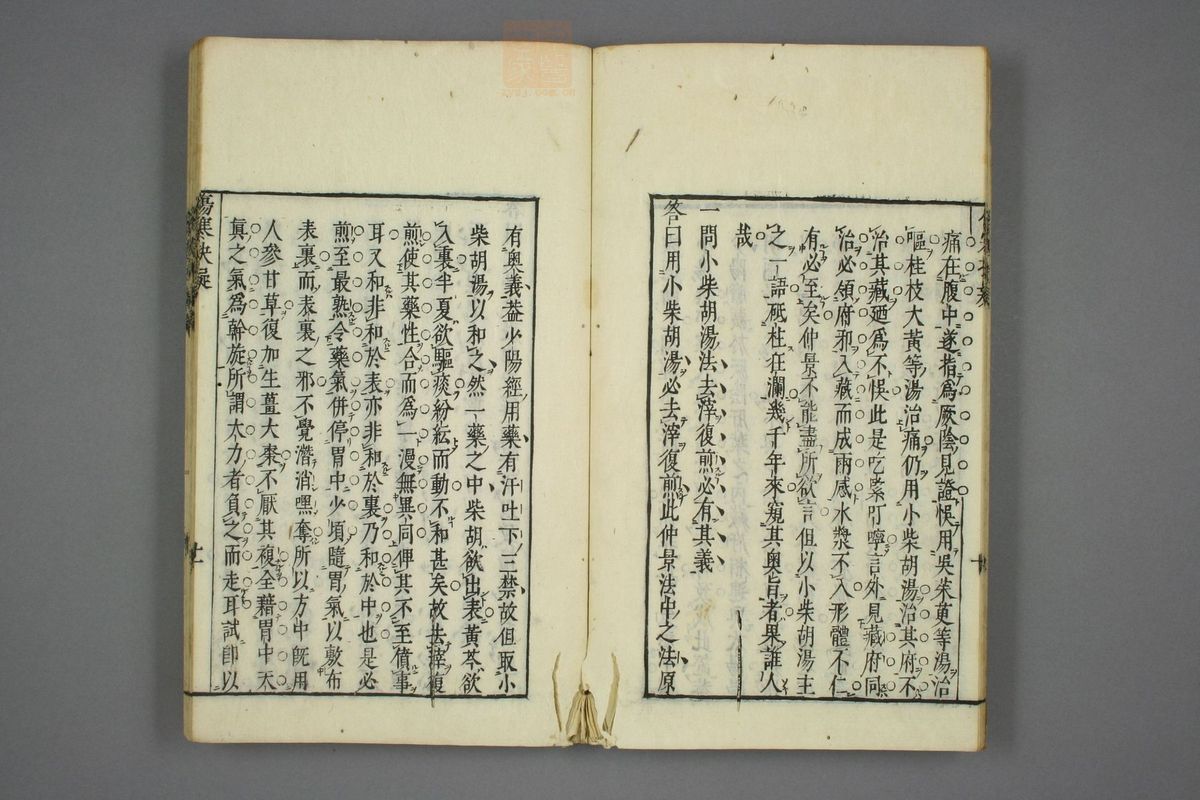 痛在腹中遂指爲厥陰見證悞用吳茱萸等湯治
嘔桂枝大黃等湯治痛仍用小柴胡湯治其府不
治其藏廼爲不悞此是吃緊叮嚀言外見藏府同
治必領府邪入藏而成兩感水漿不入形體不仁
有必至矣仲景不能盡所欲言但以小柴胡湯主
之一語砥柱狂瀾幾千年來窺其奧旨者果誰人
哉
一問小柴胡湯法去滓復煎必有其義
答曰用小柴胡湯必去滓復煎此仲景法中之法原
十
有奧義葢少陽經用藥有汗吐下三禁故但取小
柴胡湯以和之然一藥之中柴胡欲出表黃芩欲
入裏半夏欲驅痰紛紜而動不和甚矣故去滓復
煎使其藥性合而爲一漫無異同俾其不至僨事
耳又和非和於表亦非和於裏乃和於中也是必
煎至最熟令藥氣併停胃中少頃隨胃氣以敷布
表裏而表裏之邪不覺潛消嘿奪所以方中既用
人參甘草復加生薑大棗不厭其複全藉胃中天
眞之氣爲斡旋所謂大力者負之而走耳試即以
傷寒抉疑